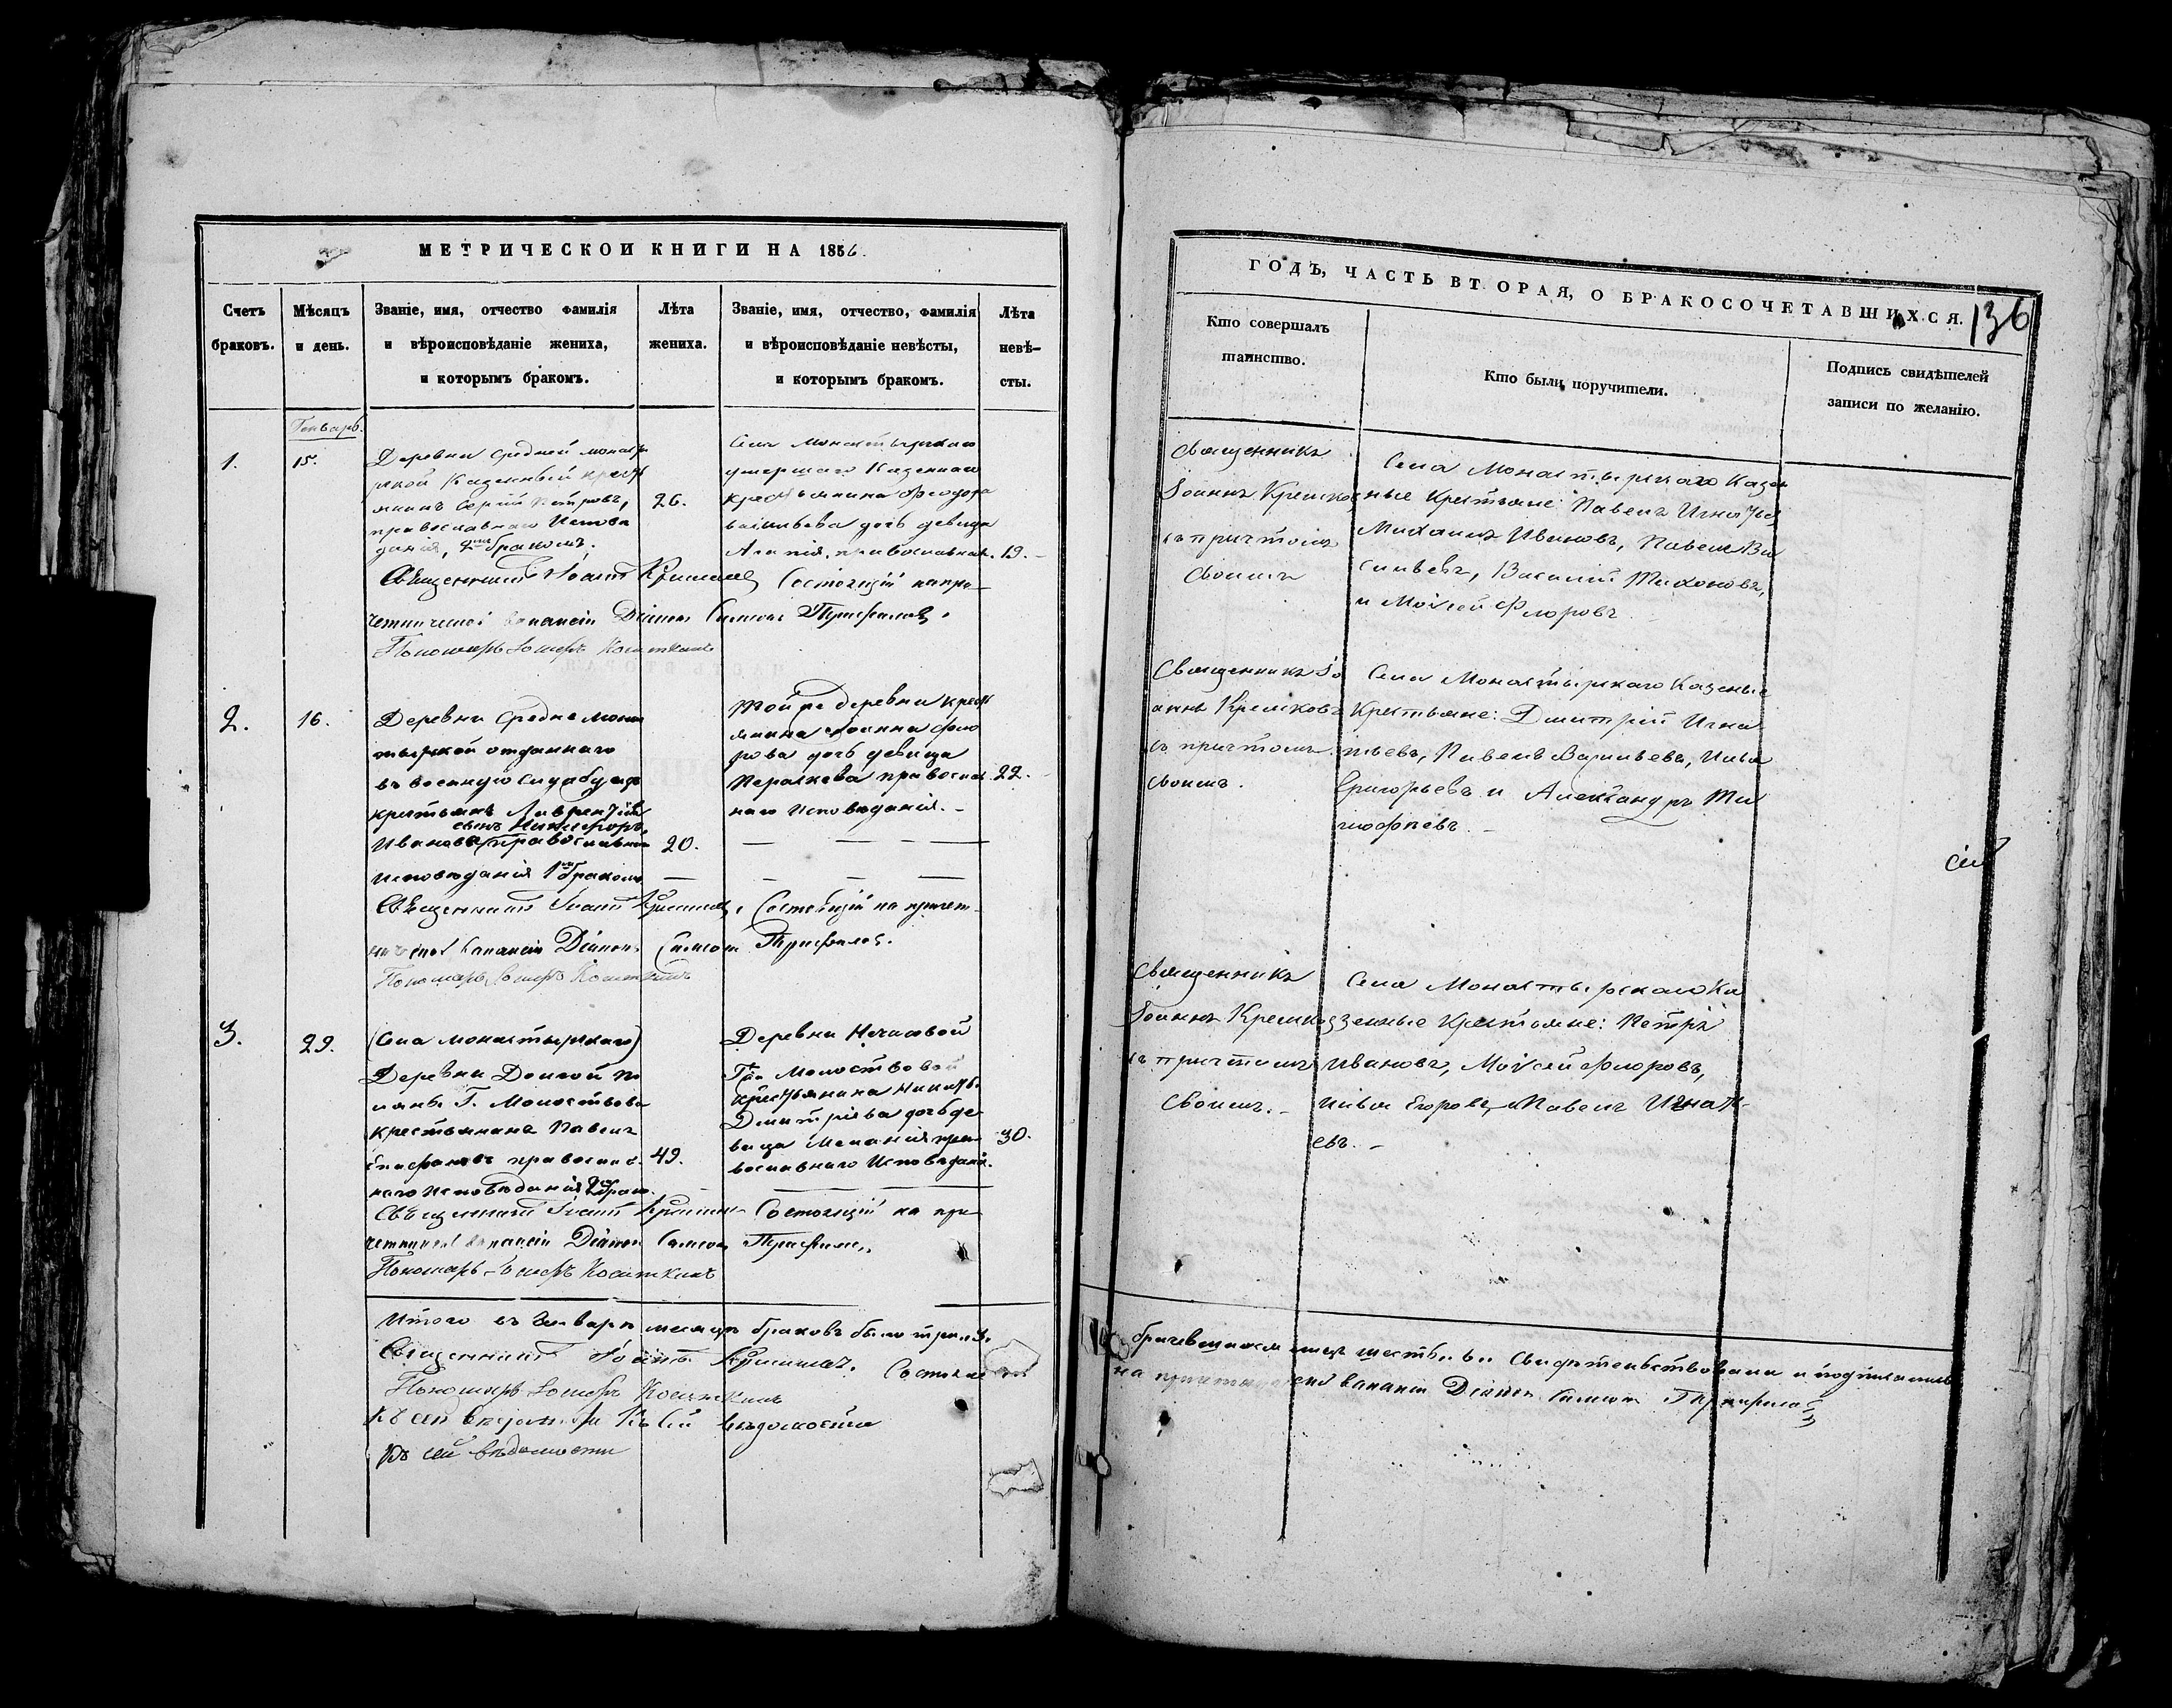 МЕТРИЧЕСКОЙ КНИГИ НА 1856.
Счетъ браковъ.
Мѣсяцъ и день.
Званіе, имя, отчество фамилія
и вѣроисповѣданіе жениха,
и которымъ бракомъ.
Лѣта жениха.
Званіе, имя, отчество, фамилія
и вѣроисповѣданіе невѣсты,
и которымъ бракомъ.
Лѣта невѣ-
сты.
Генварь.
1.
15.
Деревни Средней монаст
рской Казенный крест
янинъ Сергій Петровъ,
православнаго Испове
данія, бракомъ.
26.
Села Монастырскаго
умершаго Казеннаго
крестьянина Феодора
Васильева дочь девица
православнаго
19.
Священникъ Іоаннъ Состоящій на при-
четнической ваканcіи Діаконъ
Пономарь
2.
16.
Деревни Средне Мона
тырской отданнаго
въ военную службу изъ
крестьянъ Лаврентій
сынъ Никифоръ
Ивановъ православна
исповеданія 1мъ бракомъ
20.
Той же деревни крест
янина Иоанна Фло
рова дочь девица
Параскева православ
наго исповеданія. -
22.
Священникъ Іоаннъ Состоящій на причет-
нической ваканcіи Діаконъ
Пономарь
3.
29.
(Села Монастырскаго)
Деревни Долгой По
ляны Г. Молоствова
крестьянинъ Павелъ
Епифановъ православ
наго исповѣданія 2мъ брако.
49.
Деревни Нечасовой
Гна Молоствовой
крестьянина Никиты
Димитріева дочь де
вица Меланія пра
вославнаго Исповѣданія.
30.
Священникъ Іоаннъ Состоящій на при-
четнической ваканcіи Діаконъ
Пономарь
Итого въ Генваре месяце браковъ было три. 3.
Священникъ Іоаннъ
Пономарь
къ сей вѣдомости
ГОДЪ, ЧАСТЬ ВТОРАЯ, О БРАКОСОЧЕТАВШИХСЯ.
136
Кто совершалъ
таинство.
Кто были поручители.
Подпись свидѣтелей
записи по желанію.
Священникъ
Іоаннъ Кремков
съ причтомъ
своимъ
Села Монастырскаго Казен
ные Крестьяне: Павелъ Игнатьев
Михаилъ Ивановъ, Павелъ Ва
сильевъ, Василій Тихоновъ,
и Моисей Флоровъ
Священникъ Іо
аннъ Кремковъ
съ причтомъ
своимъ.
Села Монастырскаго Казеные
Крестьяне: Димитрій Игна
тьевъ, Павелъ Васильевъ, Илья
Григорьевъ и Александръ Ти
мофеевъ. -
Священникъ
Іоаннъ Кремков
съ причтомъ
своимъ. -
Села Монастырскаго Ка
зенные Крестьяне: Петръ
Ивановъ, Моисей Флоровъ,
Илья Егоровъ, Павелъ Игнать-
евъ. -
лицъ шесть. 6. Свидѣтельствовали и подписались
на причтнической ваканcіи Діаконъ